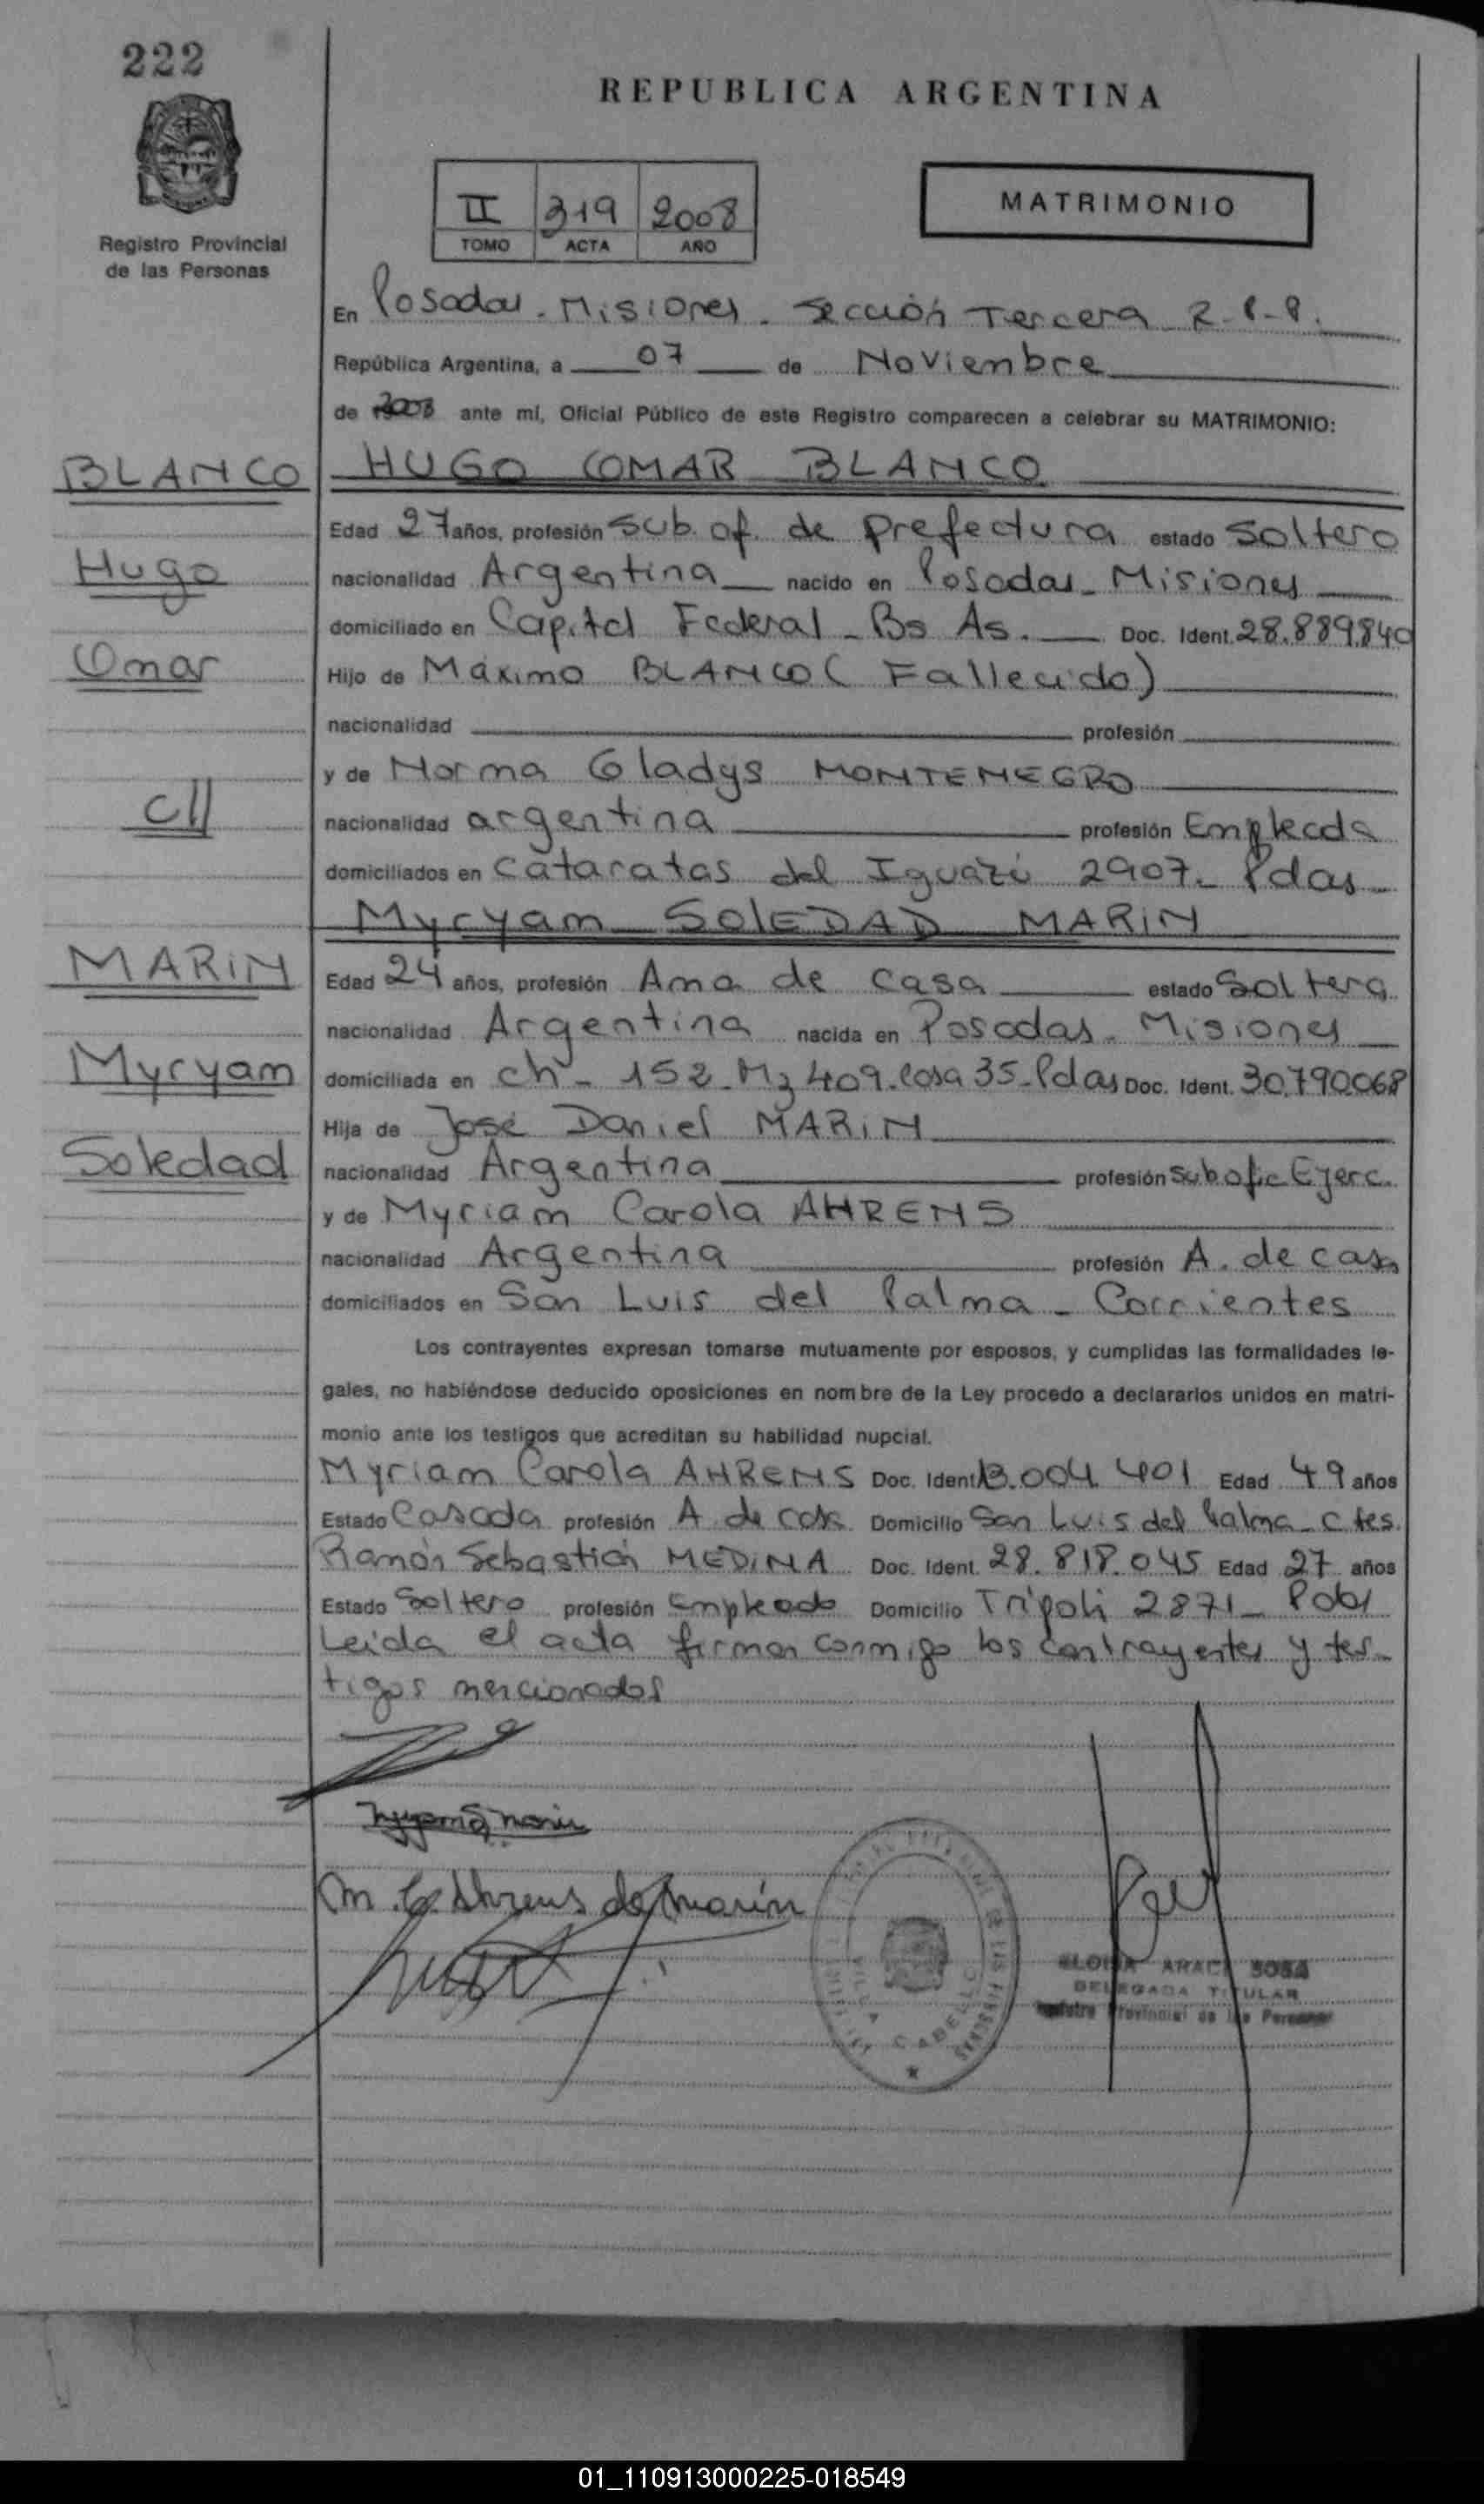 222
REPUBLICA ARGENTINA
II 319 2008
TOMO ACTA AÑO
MATRIMONIO
Registro Provincial
de las Personas
En Posadas - Misiones - Sección Tercera R-P-P.
República Argentina, a 07 de Noviembre
de 2008 ante mí, Oficial Público de este Registro comparecen a celebrar su MATRIMONIO:
BLANCO HUGO OMAR BLANCO
Edad 27 años, profesión Sub. of. de prefectura estado Soltero
Hugo nacionalidad Argentina nacido en Posadas - Misiones
domiciliado en Capital Federal - Bs As. Doc. Ident. 28.889.840
Omar Hijo de Máximo BLANCO (Fallecido)
nacionalidad profesión
y de Norma Gladys MONTENEGRO
c// nacionalidad argentina profesión Empleada
domiciliados en Cataratas del Iguazú 2907 - Pdas -
Myryam SOLEDAD MARIN
MARIN Edad 24 años, profesión Ama de casa estado Soltera
nacionalidad Argentina nacida en Posadas - Misiones
Myryam domiciliada en ch - 152 - Mz 409 - casa 35 - Pdas Doc. Ident. 30.790.068
Hija de José Daniel MARIN
Soledad nacionalidad Argentina profesión Subofic Ejerc.
y de Myriam Carola AHRENS
nacionalidad Argentina profesión A. de casa
domiciliados en San Luis del Palma - Corrientes
Los contrayentes expresan tomarse mutuamente por esposos, y cumplidas las formalidades le-
gales, no habiéndose deducido oposiciones en nombre de la Ley procedo a declararlos unidos en matri-
monio ante los testigos que acreditan su habilidad nupcial.
Myriam Carola AHRENS Doc. Ident. 13.004.401 Edad 49 años
Estado Casada profesión A de casa Domicilio San Luis del Palma - Ctes.
Ramón Sebastián MEDINA Doc. Ident. 28.818.045 Edad 27 años
Estado Soltero profesión Empleado Domicilio Trípoli 2871 - Pdas
Leida el acta firman conmigo los contrayentes y tes-
tigos mencionados
M. C. Ahrens de Marín
VILLA CABELLO
ELOISA ARACI SOSA
DELEGADA TITULAR
Registro Provincial de las Personas
01_110913000225-018549